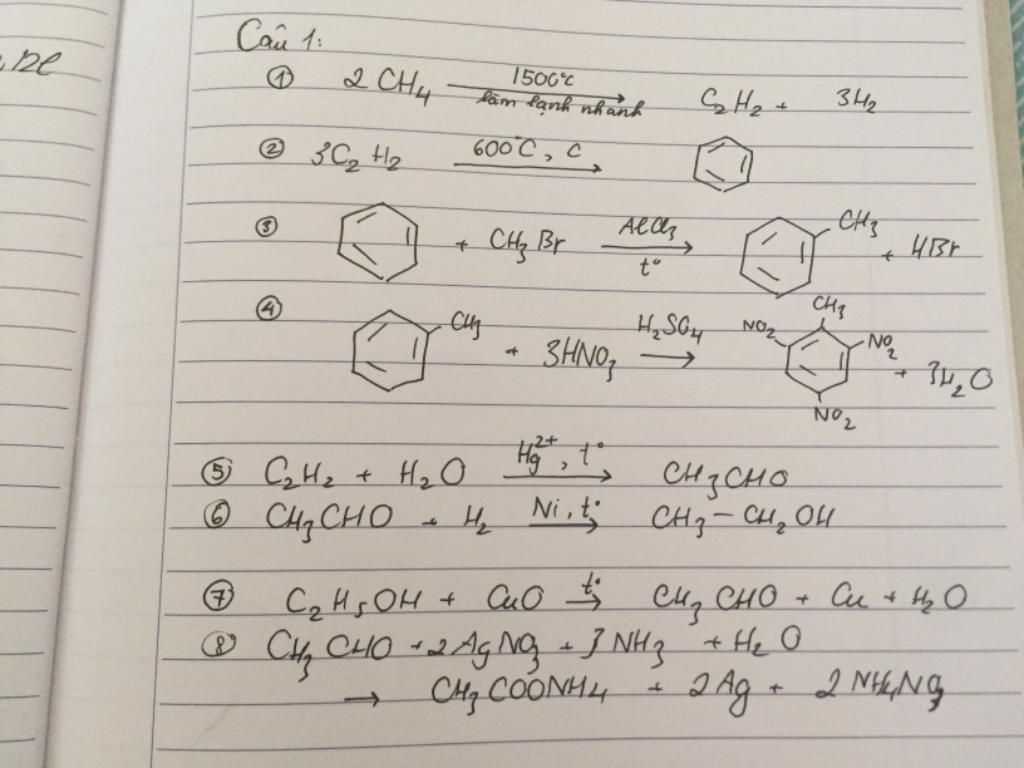 Câu 1:
① 2 CH₄ 1500°C làm lạnh nhanh → C₂H₂ + 3H₂
② 3C₂H₂ 600°C, C →
③ + CH₃Br AlCl₃ t° → CH₃ + HBr
④ CH₃ + 3HNO₃ H₂SO₄ → CH₃ NO₂ NO₂ NO₂ + 3H₂O
⑤ C₂H₂ + H₂O Hg²⁺, t° → CH₃CHO
⑥ CH₃CHO + H₂ Ni, t° → CH₃ – CH₂OH
⑦ C₂H₅OH + CuO t° → CH₃CHO + Cu + H₂O
⑧ CH₃CHO + 2AgNO₃ + 3NH₃ + H₂O
→ CH₃COONH₄ + 2Ag + 2NH₄NO₃